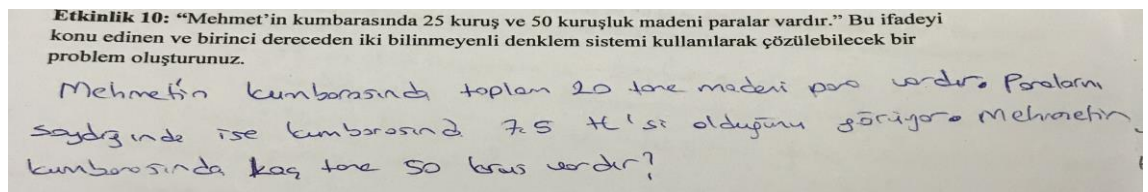 Etkinlik 10: “Mehmet’in kumbarasında 25 kuruş ve 50 kuruşluk madeni paralar vardır.” Bu ifadeyi
konu edinen ve birinci dereceden iki bilinmeyenli denklem sistemi kullanılarak çözülebilecek bir
problem oluşturunuz.
Mehmet'in kumbarasında toplam 20 tane madeni para vardır. Paralarını
saydığında ise kumbarasında 7.5 tl'si olduğunu görüyor. Mehmetin
kumbarasında kaç tane 50 kuruş vardır?